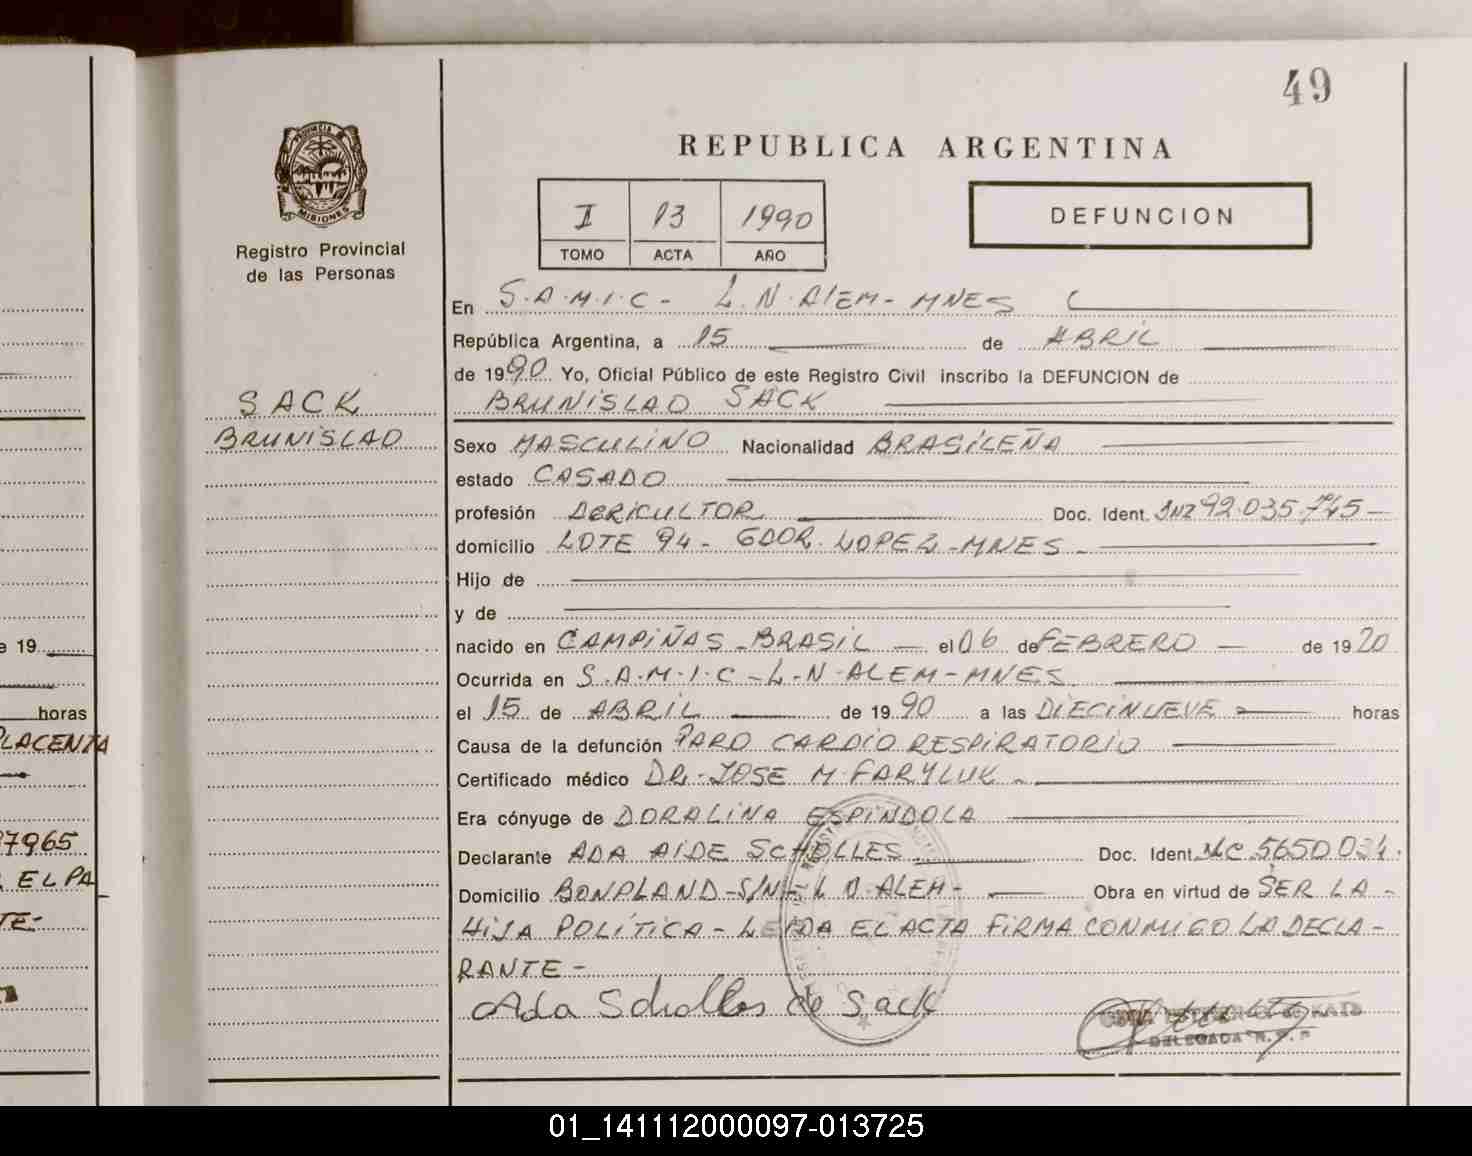 49
REPUBLICA ARGENTINA
PROVINCIA DE
MISIONES
Registro Provincial
de las Personas
I 13 1990
TOMO ACTA AÑO
DEFUNCION
En S.A.M.I.C- L.N.ALEM-MNES
República Argentina, a 15 de ABRIL
de 1990 Yo, Oficial Público de este Registro Civil inscribo la DEFUNCION de
BRUNISLAO SACK
SACK
BRUNISLAO
Sexo MASCULINO Nacionalidad BRASILEÑA
estado CASADO
profesión AGRICULTOR Doc. Ident. 92.035.745-
domicilio LOTE 94- GDOR.LOPEZ-MNES-
Hijo de
y de
nacido en CAMPIÑAS-BRASIL - el 06 de FEBRERO - de 1920
Ocurrida en S.A.M.I.C-L-N-ALEM-MNES
el 15 de ABRIL de 1990 a las DIECINUEVE horas
Causa de la defunción PARO CARDIO RESPIRATORIO
Certificado médico DR. JOSE M.FARYLUK-
Era cónyuge de DORALINA ESPINDOLA
Declarante ADA AIDE SCHOLLES Doc. Ident. 5650034.
Domicilio BONPLAND-S/N-L N.ALEM- Obra en virtud de SER LA-
HIJA POLITICA-LEIDA EL ACTA FIRMA CONMIGO LA DECLA-
RANTE-
Ada Scholles de Sack
DELEGADA
e 19
horas
PLACENTA
37965
EL PA
TE-
01_141112000097-013725